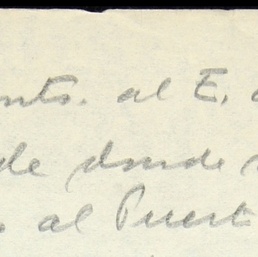 nts. al E.
de donde
al Puert